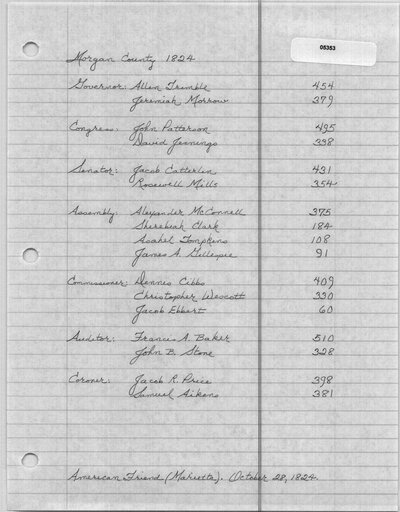 05353
Morgan County 1824
Governor: Allen Trimble 454
Jeremiah Morrow 379
Congress: John Patterson 495
David Jennings 338
Senator: Jacob Catterlin 431
Rosewell Mills 354
Assembly: Alexander McConnell 375
Sherebiah Clark 184
Asahel Tompkins 108
James A. Gillespie 91
Commissioner: Dennis Cibbs 409
Christopher Wescott 330
Jacob Ebbert 60
Auditor: Francis A. Baker 510
John B. Stone 328
Coroner: Jacob R. Price 398
Samuel Aikens 381
American Friend (Marietta). October 28, 1824.